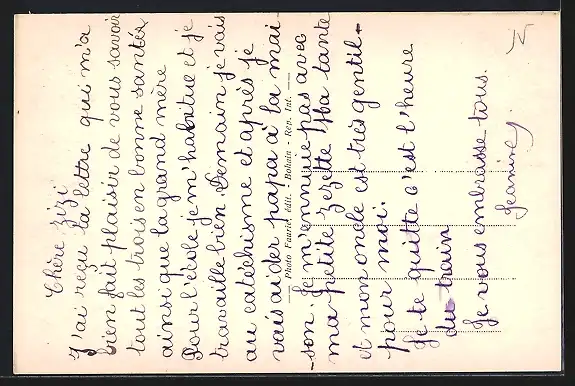 Chère zizi
J'ai reçu la lettre qui m'a
bien fait plaisir de vous savoir
tout les trois en bonne santée
ainsi que la grand mère
Pour l'école je m'habitue et je
travaille bien. Demain je vais
au catéchisme et après je
vais aider papa à la mai-
Photo Fauric, édit. - Bohain - Rep. Int.
-son. Je m'ennuie pas avec
ma petite zezette. Ma tante
et mon oncle est très gentil
pour moi.
Je te quitte c'est l'heure
du train
Je vous embrasse tous.
Jeanine